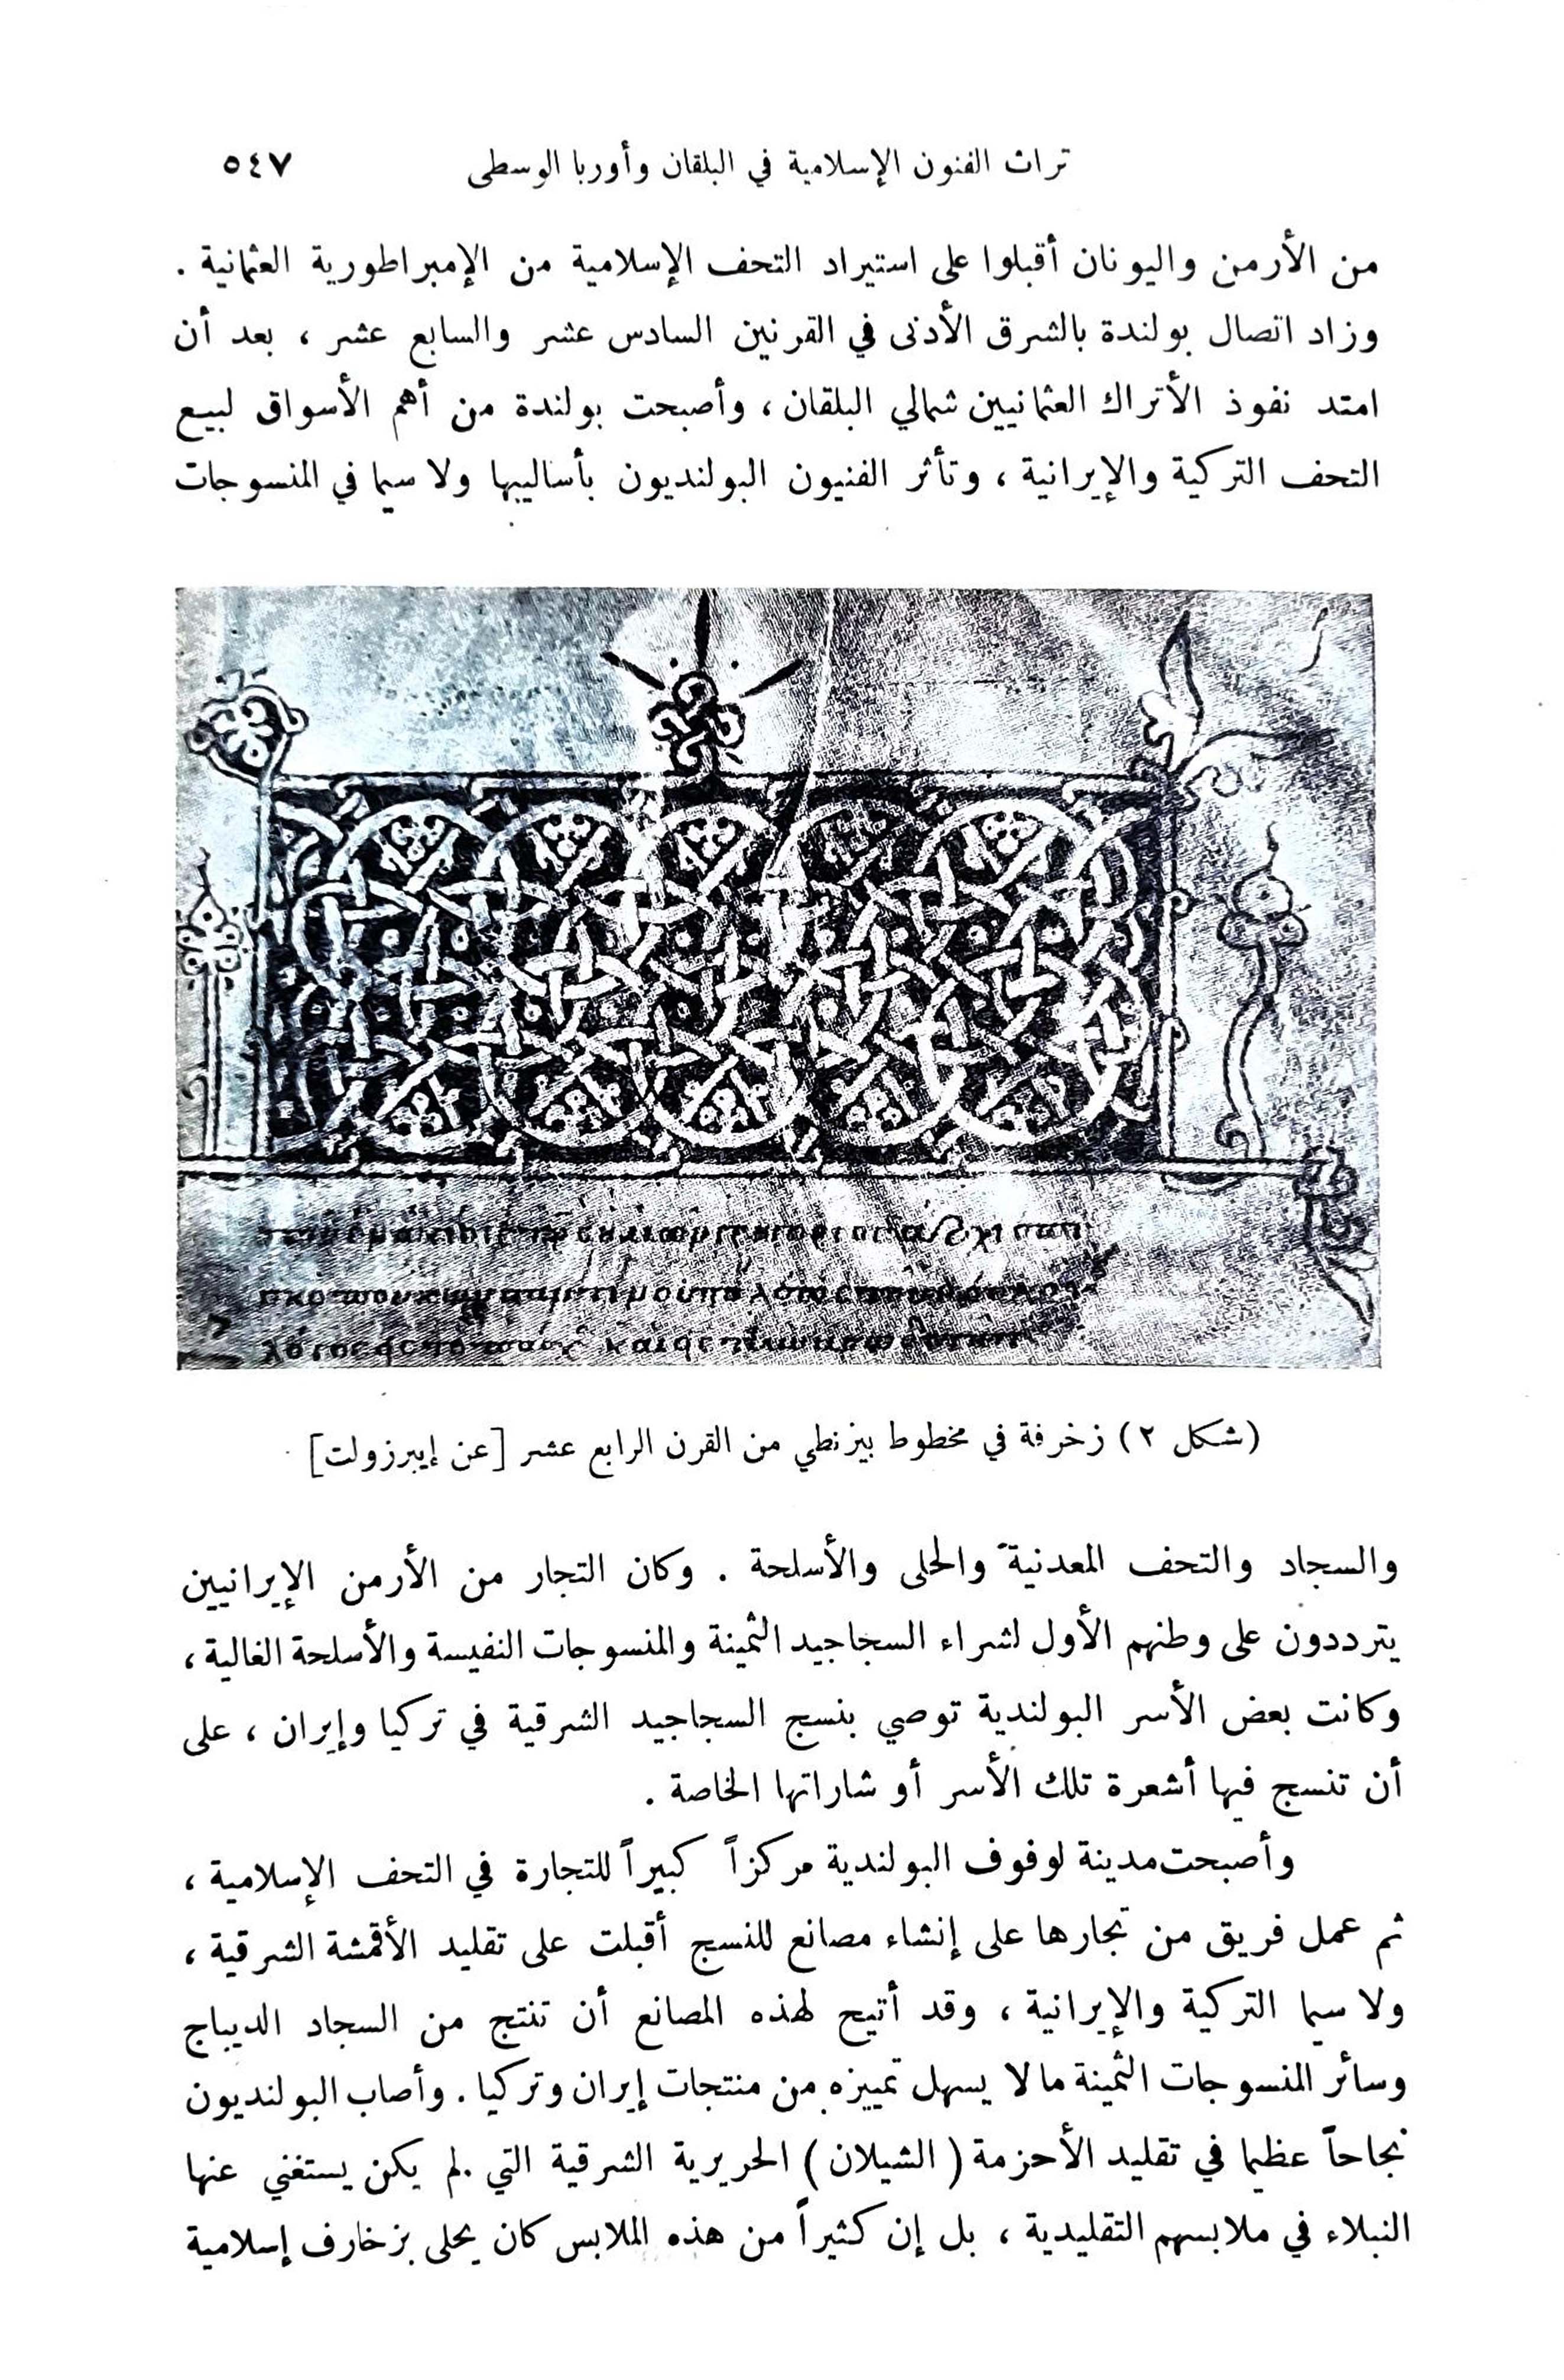 تراث الفنون الإسلامية في البلقان وأوربا الوسطى ٥٤٧
من الأرمن واليونان أقبلوا على استيراد التحف الإسلامية من الإمبراطورية العثمانية .
وزاد اتصال بولندة بالشرق الأدنى في القرنين السادس عشر والسابع عشر ، بعد أن
امتد نفوذ الأتراك العثمانيين شمالي البلقان ، وأصبحت بولندة من أهم الأسواق لبيع
التحف التركية والإيرانية ، وتأثر الفنيون البولنديون بأساليبها ولا سيما في المنسوجات
(شكل ٢) زخرفة في مخطوط بيزنطي من القرن الرابع عشر [عن إيبرزولت]
والسجاد والتحف المعدنية والحلى والأسلحة . وكان التجار من الأرمن الإيرانيين
يترددون على وطنهم الأول لشراء السجاجيد الثمينة والمنسوجات النفيسة والأسلحة الغالية ،
وكانت بعض الأسر البولندية توصي بنسج السجاجيد الشرقية في تركيا وإيران ، على
أن تنسج فيها أشعرة تلك الأسر أو شاراتها الخاصة .
وأصبحت مدينة لوفوف البولندية مركزاً كبيراً للتجارة في التحف الإسلامية ،
ثم عمل فريق من تجارها على إنشاء مصانع للنسج أقبلت على تقليد الأقمشة الشرقية ،
ولا سيما التركية والإيرانية ، وقد أتيح لهذه المصانع أن تنتج من السجاد الديباج
وسائر المنسوجات الثمينة ما لا يسهل تمييزه من منتجات إيران وتركيا . وأصاب البولنديون
نجاحاً عظيما في تقليد الأحزمة ( الشيلان ) الحريرية الشرقية التي لم يكن يستغني عنها
النبلاء في ملابسهم التقليدية ، بل إن كثيراً من هذه الملابس كان يحلى بزخارف إسلامية